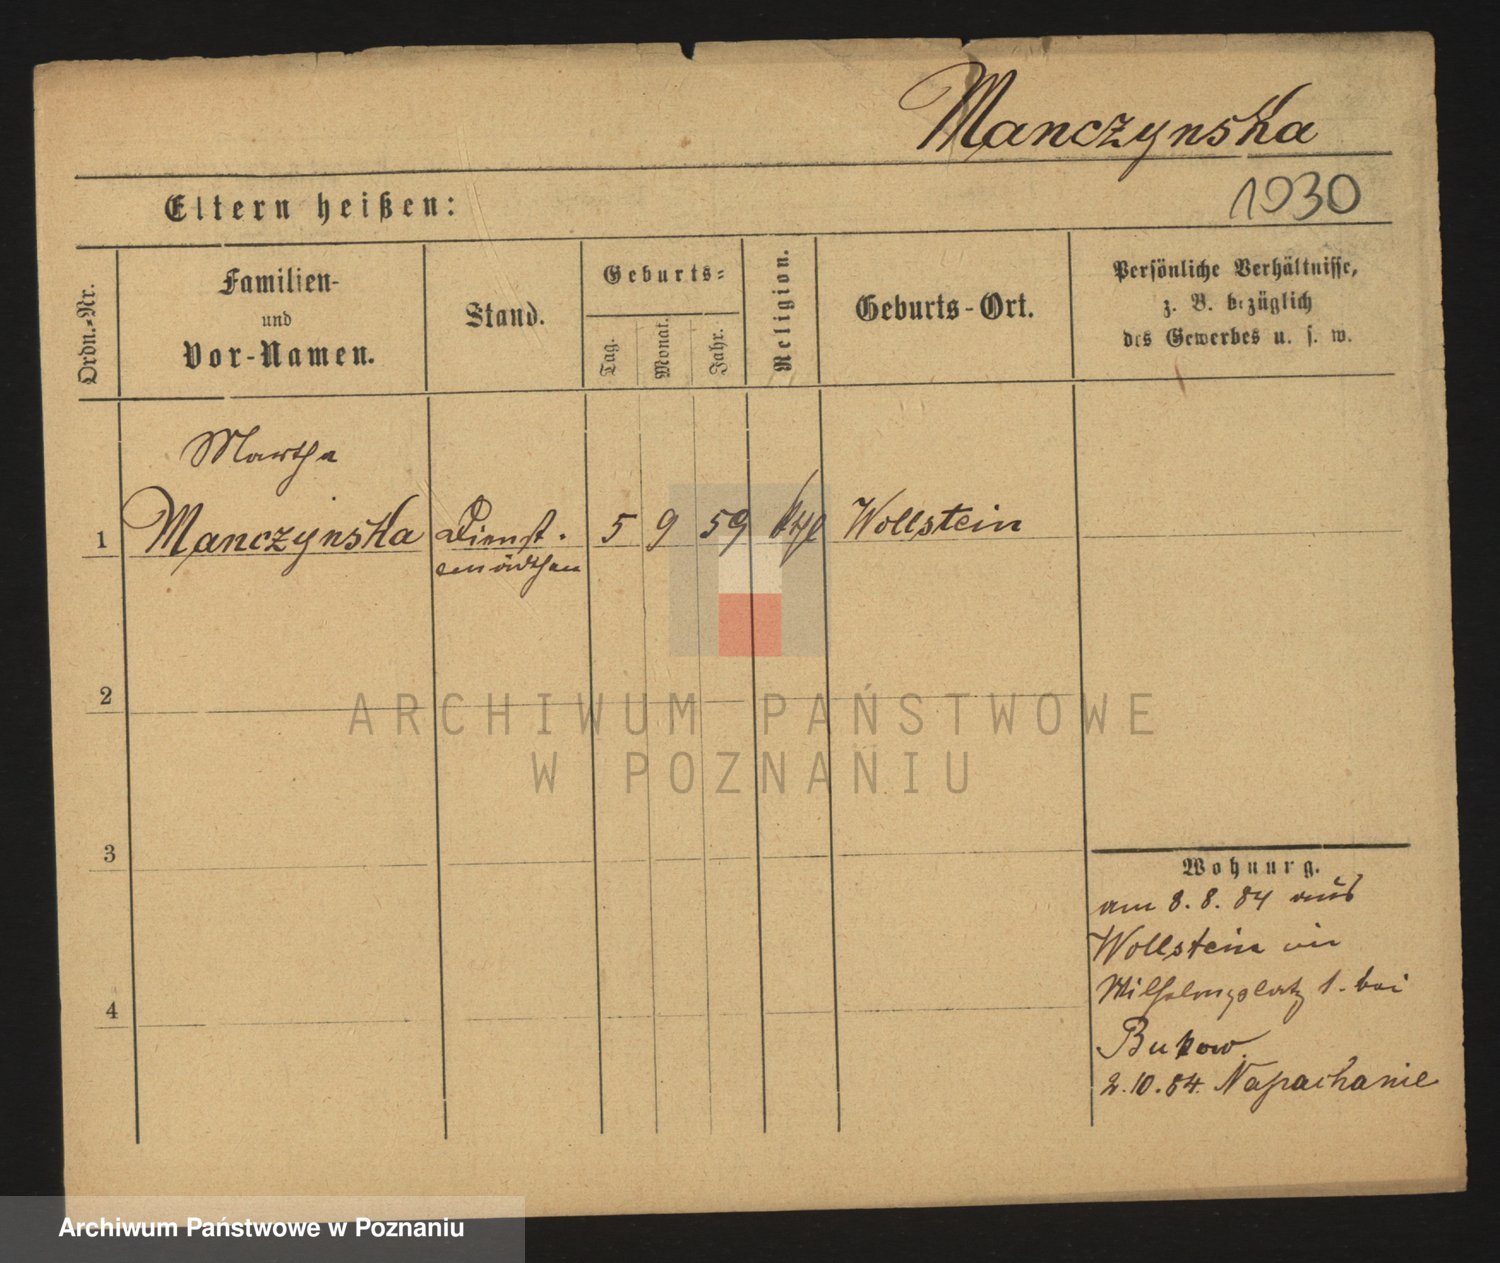 Manczynska
1030
Eltern heißen:
Ordn.-Nr.
Familien-
und
Vor-Namen.
Stand.
Geburts-
Tag.
Monat.
Jahr.
Religion.
Geburts-Ort.
Persönliche Verhältnisse,
z. B. bezüglich
des Gewerbes u. s. w.
Martha
1 Manczynska Dienst- 5 9 59 Wollstein
mädchen
2
ARCHIWUM PAŃSTWOWE
W POZNANIU
3
Wohnung.
am 8. 8. 84 aus
Wollstein in
4
Wilhelmsplatz 1. bei
Bukow.
2.10.84. Napachanie
Archiwum Państwowe w Poznaniu